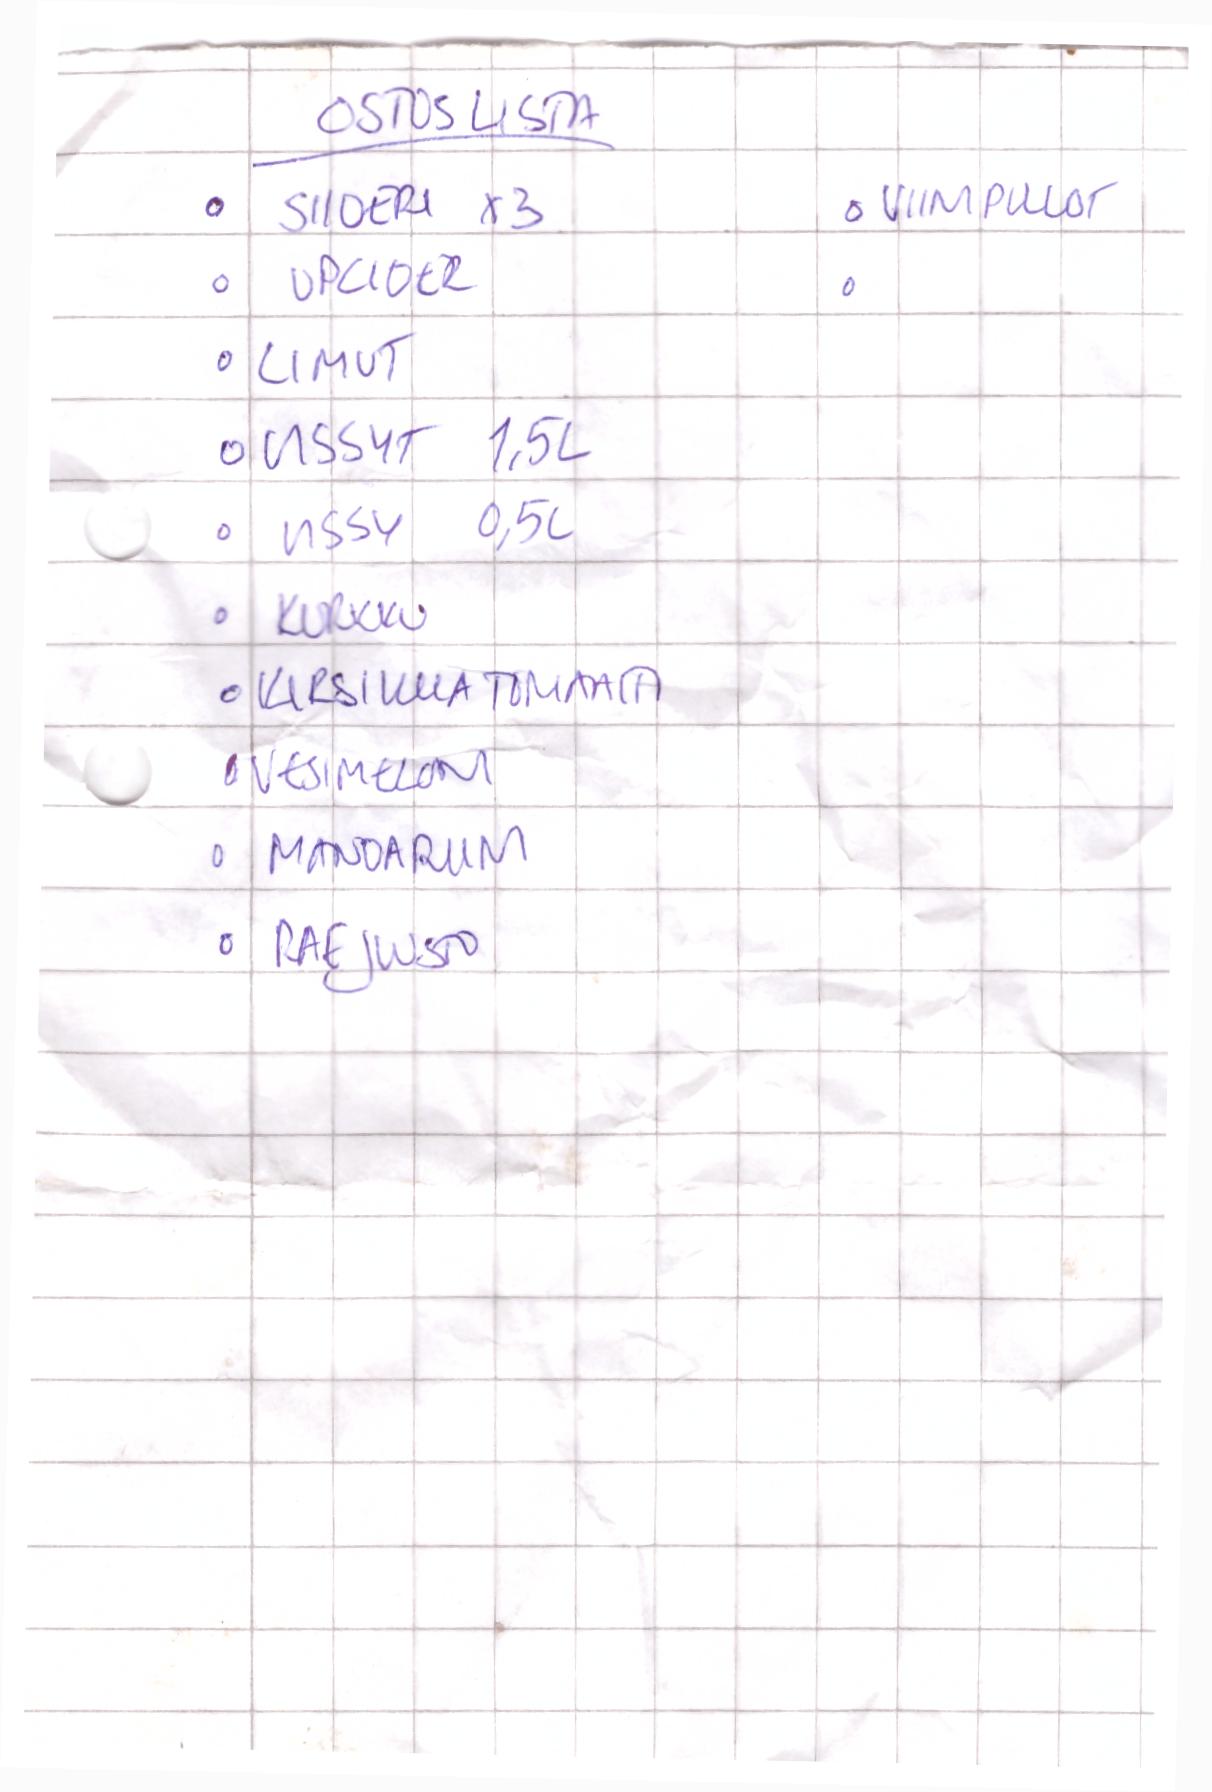 OSTOSLISTA
SIIDERI x3
UPCIDER
LIMUT
VISSYT 1,5L
VISSY 0,5L
KURKKU
KIRSIKKATOMAATTI
VESIMELONI
MANDARIINI
RAEJUUSTO
VIINIPULLOT